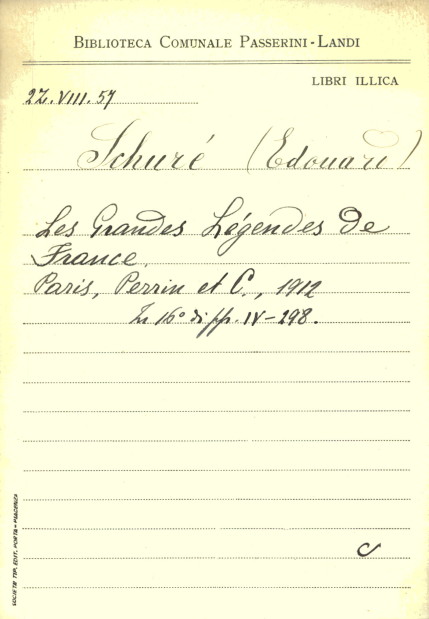 BIBLIOTECA COMUNALE PASSERINI-LANDI
LIBRI ILLICA
22.VIII.57
Schuré (Edouard)
Les Grandes Légendes de
France.
Paris, Perrin et C., 1912
In 16° di pp. IV-298.
c
SOCIETÀ TIP. EDIT. PORTA - PIACENZA